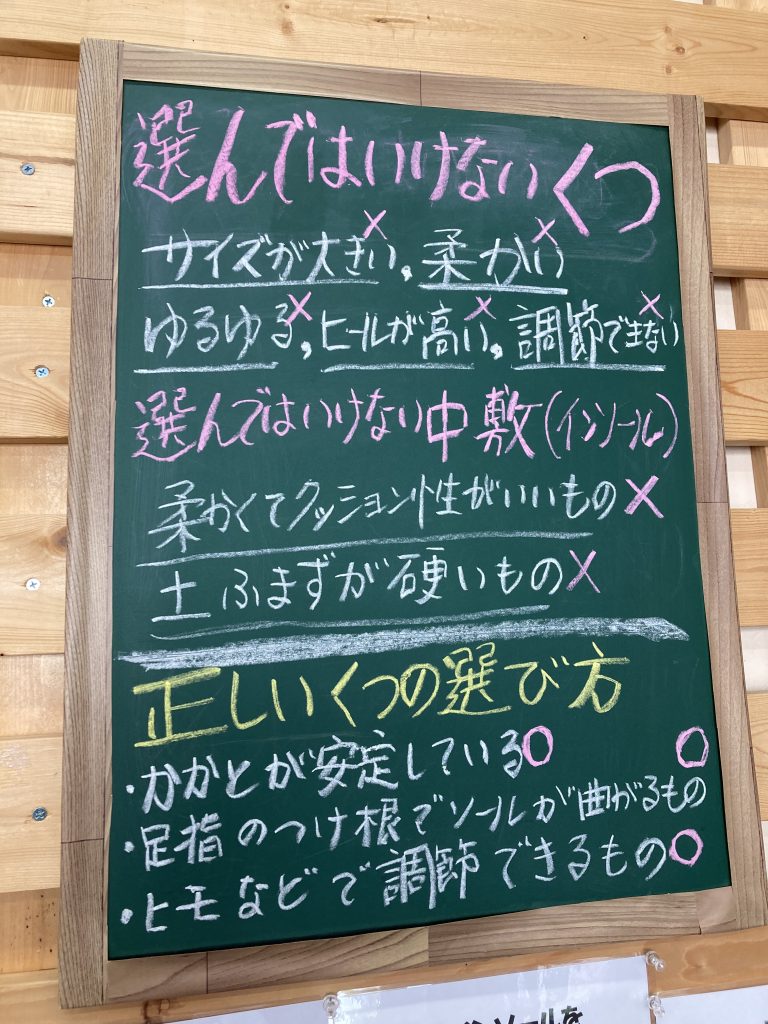 選んではいけないくつ
サイズが大きい×,柔かい×
ゆるゆる×,ヒールが高い×,調節できない×
選んではいけない中敷(インソール)
柔かくてクッション性がいいもの×
土ふまずが硬いもの×
正しいくつの選び方
・かかとが安定している○
・足指のつけ根でソールが曲がるもの○
・ヒモなどで調節できるもの○
ソールを